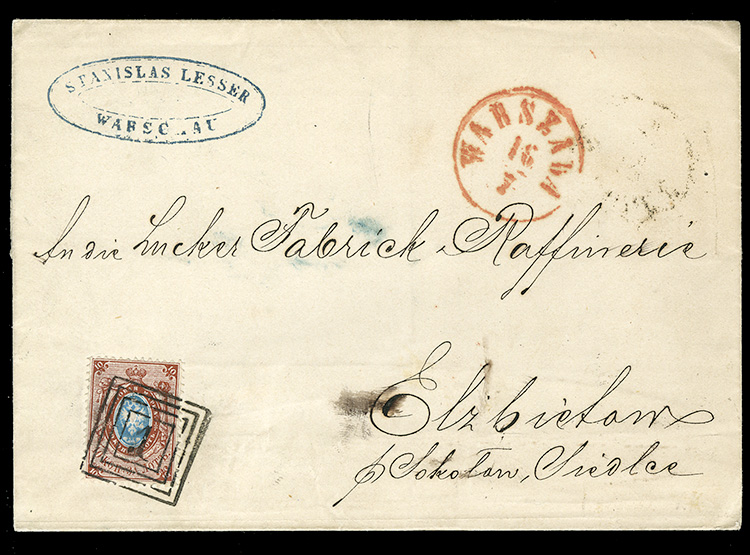 STANISLAS LESSER
WARSCHAU
WARSZAWA
16
An die Zucker Fabrick & Raffinerie
Elzbietow
p Sokolow, Siedlce
10